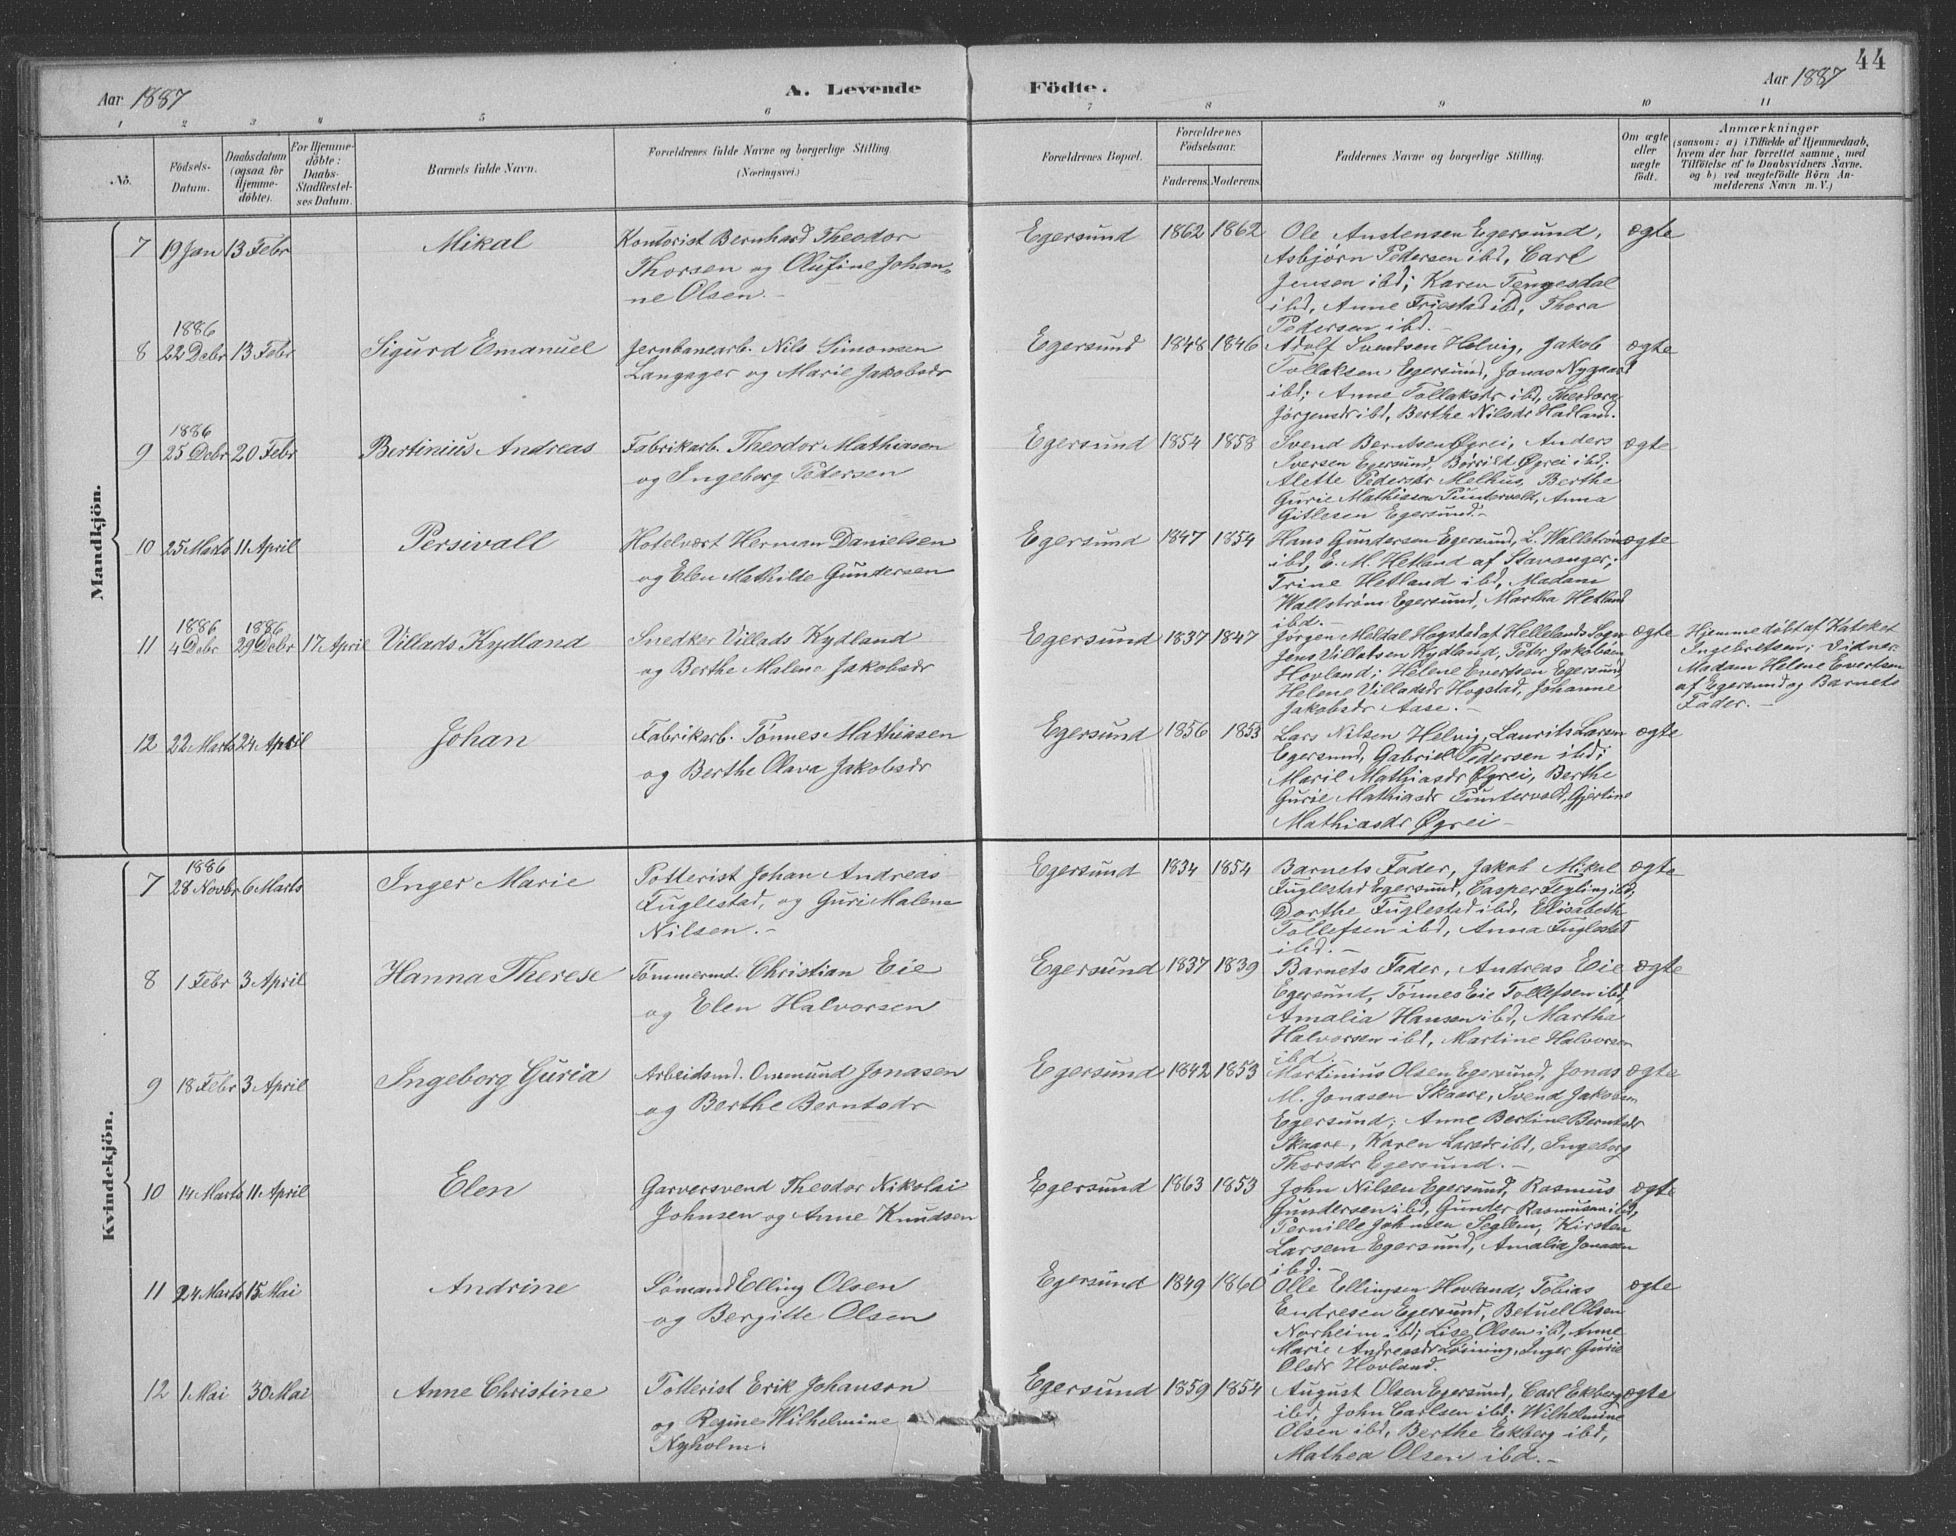 44
Aar 1887
A. Levende Födte.
Aar 1887
1 2 3 4 5 6 7 8 9 10 11
No.
Födsels-Datum.
Daabsdatum (ogsaa for Hjemme-döbte).
For Hjemme-döbte: Daabs-Stadfæstel-ses Datum.
Barnets fulde Navn.
Forældrenes fulde Navne og borgerlige Stilling.
(Næringsvei.)
Forældrenes Bopæl.
Forældrenes Födselsaar.
Faderens. Moderens.
Faddernes Navne og borgerlige Stilling.
Om ægte eller uægte födt.
Anmærkninger
(saasom: a) i Tilfælde af Hjemmedaab,
hvem der har forrettet samme, med
Tilföielse af to Daabsvidners Navne.
og b) ved uægtefödte Börn An-
melderens Navn m. V.)
Mandkjön.
7 19 Jan 13 Febr Mikal
Kontorist Bernhard Theodor
Thorsen og Olufine Johan-
ne Olsen.-
Egersund 1862 1862
Ole Austensen Egersund,
Asbjørn Pedersen ibd, Carl
Jensen ibd; Karen Tengesdal
ibd, Anne Friestad ibd, Thora
Pedersen ibd.-
ægte
8 1886 22 Debr 13 Febr Sigurd Emanuel
Jernbanearb. Nils Simonsen
Langager og Marie Jakobsdr
Egersund 1848 1846
Adolf Svendsen Helvig, Jakob
Tollaksen Egersund, Jonas Nygaard
ibd; Anne Tollaksdr ibd, Theodora
Jörgensdr ibd, Berthe Nilsdr Hadland.
ægte
9 1886 25 Debr 20 Febr Bertinius Andreas
Fabrikarb. Theodor Mathiasen
og Ingeborg Pedersen
Egersund 1854 1858
Svend Berntsen Øgrei, Anders
Iversen Egersund, Børrild Øgrei ibd;
Alette Pedersdr Melhus, Berthe
Gurie Mathiasen Puntervold, Anna
Gitlesen Egersund.-
ægte
10 25 Marts 11 April Persivall
Hotelvært Herman Danielsen
og Elen Mathilde Gundersen
Egersund 1847 1854
Hans Gundersen Egersund, L. Wallstrøm
ibd, E. M. Hetland af Stavanger;
Trine Hetland ibd, Madam
Wallstrøm Egersund, Martha Hetland
ibd.-
ægte
11 1886 4 Debr 1886 29 Debr 17 April Villads Kydland
Snedker Villads Kydland
og Berthe Malene Jakobsdr
Egersund 1837 1847
Jørgen Meldal Hogstad af Hellelands Sogn
Jens Villadsen Kydland, Peter Jakobsen
Hovland; Helene Evertsen Egersund,
Helene Villadsdr Hogstad, Johanne
Jakobsdr Aase.-
ægte
Hjemmedøbt af Kateket
Ingebretsen; Vidner
Madam Helene Evertsen
af Egersund og Barnets
Fader.-
12 22 Marts 24 April Johan
Fabrikarb. Tønnes Mathiasen
og Berthe Olava Jakobsdr
Egersund 1856 1853
Lars Nilsen Helvig, Laurits Larsen
Egersund, Gabriel Pedersen ibd;
Marie Mathiasdr Øgrei, Berthe
Gurie Mathiasdr Puntervold, Gjertine
Mathiasdr Øgrei-
ægte
Kvindekjön.
7 1886 28 Novbr 6 Marts Inger Marie
Potterist Johan Andreas
Fuglestad, og Guri Malene
Nilsen.-
Egersund 1834 1854
Barnets Fader, Jakob Mikal
Fuglestad Egersund, Casper Feyling ibd;
Dorthe Fuglestad ibd, Elisabeth
Tollefsen ibd, Anna Fuglestad
ibd.-
ægte
8 1 Febr 3 April Hanna Therese
Tømmermd. Christian Eie
og Elen Halvorsen
Egersund 1837 1839
Barnets Fader, Andreas Eie
Egersund, Tønnes Eie Tollefsen ibd,
Amalia Hansen ibd, Martha
Halvorsen ibd, Martine Halvorsen
ibd.
ægte
9 18 Febr 3 April Ingeborg Guria
Arbeidsmd. Ommund Jonasen
og Berthe Berntsdr
Egersund 1842 1853
Martinius Olsen Egersund, Jonas
M. Jonasen Skaare, Svend Jakobsen
Egersund; Anne Bertine Berntsdr
Skaare, Karen Larsdr ibd, Ingeborg
Thorsdr Egersund.-
ægte
10 14 Marts 11 April Elen
Garversvend Theodor Nikolai
Johnsen og Anne Knudsen
Egersund 1863 1853
John Nilsen Egersund, Rasmus
Gundersen ibd, Gunder Rasmussen ibd;
Pernille Johnsen Seglem, Kirsten
Larsen Egersund, Amalia Jonasen
ibd.-
ægte
11 24 Marts 15 Mai Andrine
Sømand Elling Olsen
og Bergitte Olsen
Egersund 1849 1860
Olle Ellingsen Hovland, Tobias
Endresen Egersund, Betuel Olsen
Norheim ibd; Lise Olsen ibd, Anne
Marie Andreasdr Løining, Inger Gurie
Olsdr Hovland.
ægte
12 1 Mai 30 Mai Anne Christine
Potterist Erik Johanson
og Regine Wilhelmine
Nyholm.
Egersund 1859 1854
August Olsen Egersund, Carl Ekberg
ibd, John Carlsen ibd; Wilhelmine
Olsen ibd, Berthe Ekberg ibd,
Mathea Olsen ibd.-
ægte